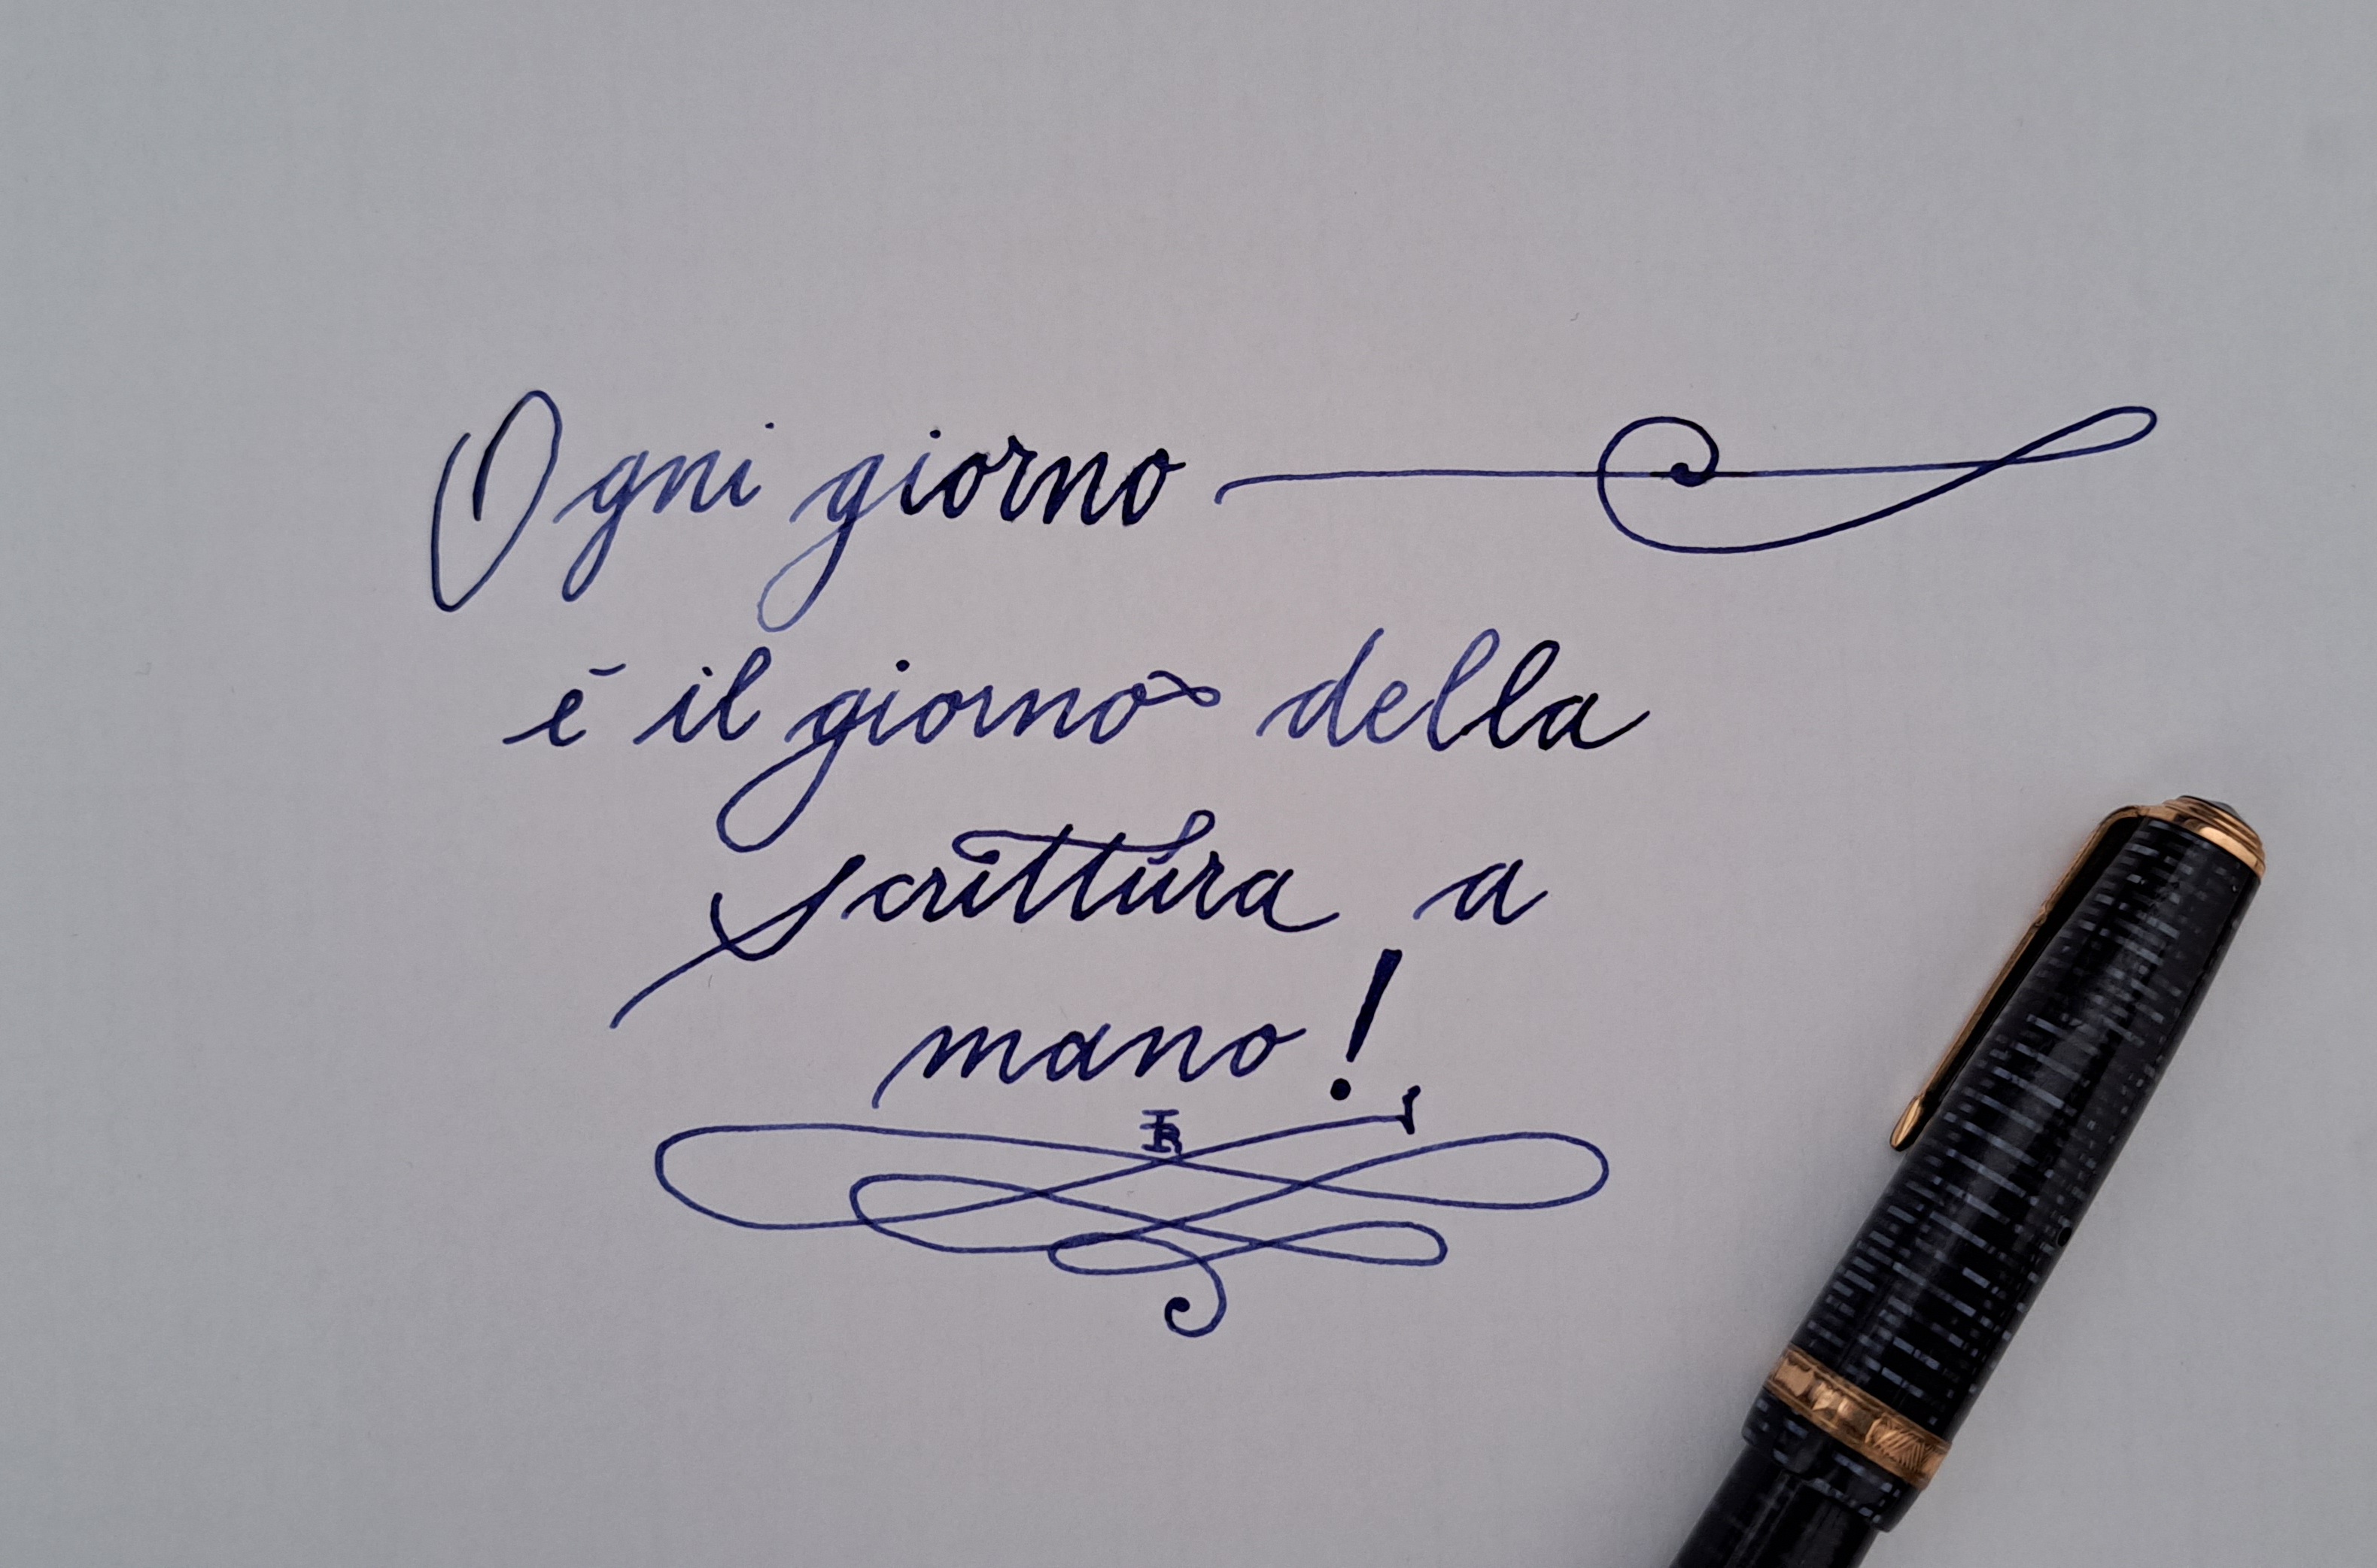 Ogni giorno
è il giorno della
scrittura a
mano!